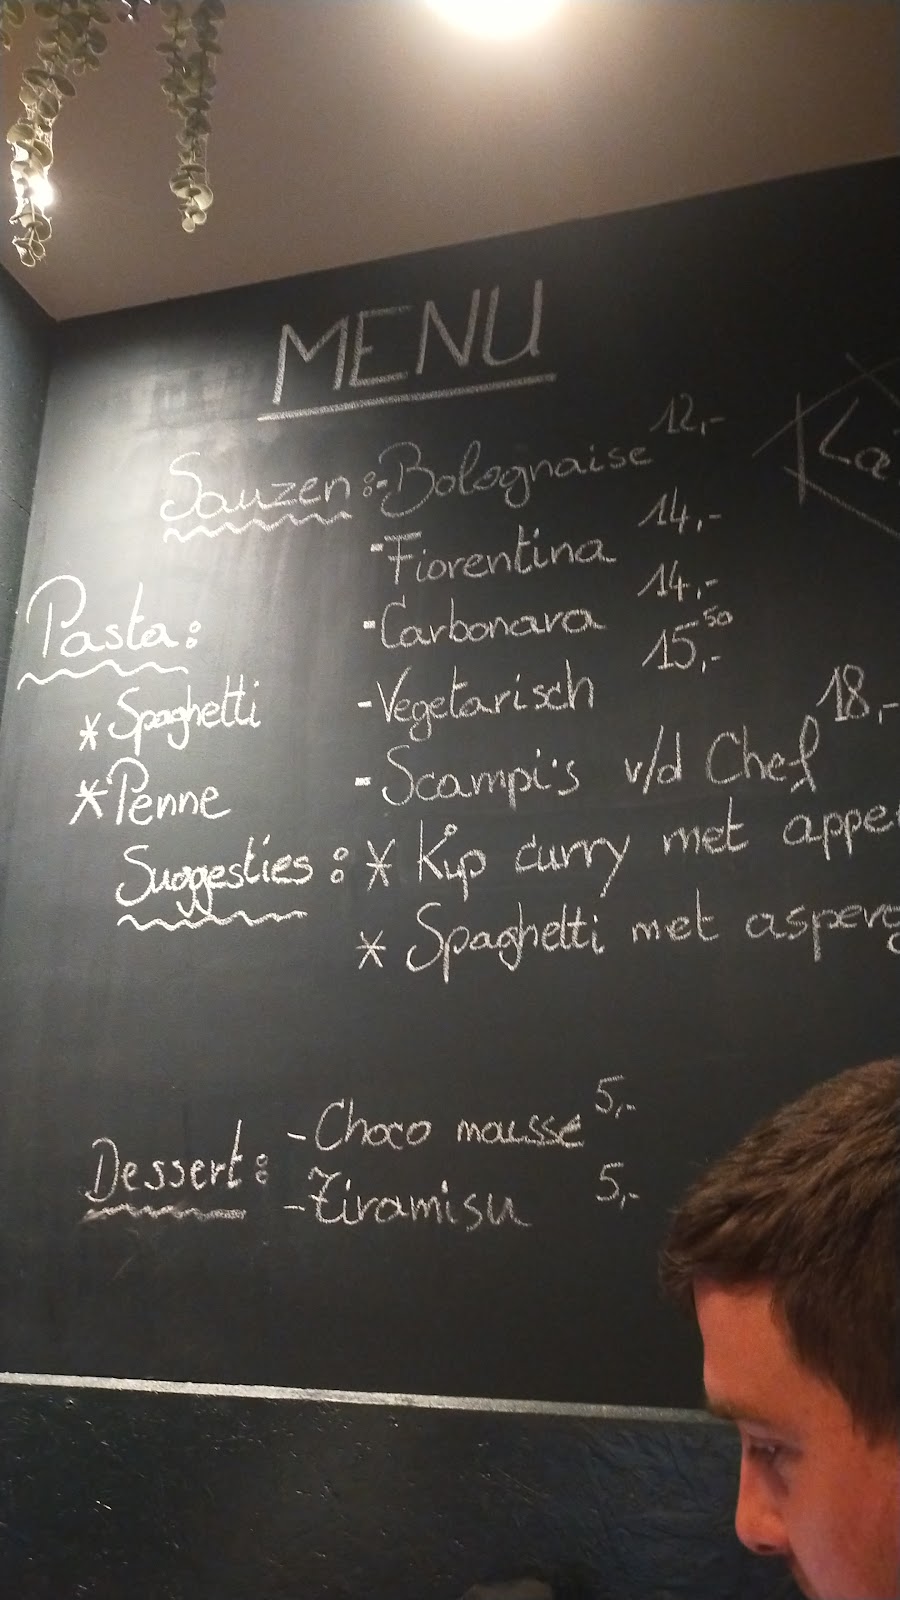 MENU
Sauzen:
-Bolognaise 12,-
-Fiorentina 14,-
-Carbonara 14,-
-Vegetarisch 15,50-
-Scampi's v/d Chef 18,-
Pasta:
* Spaghetti
* Penne
Suggesties:
* Kip curry met
* Spaghetti met
Dessert:
-Choco mousse 5,-
-Tiramisu 5,-